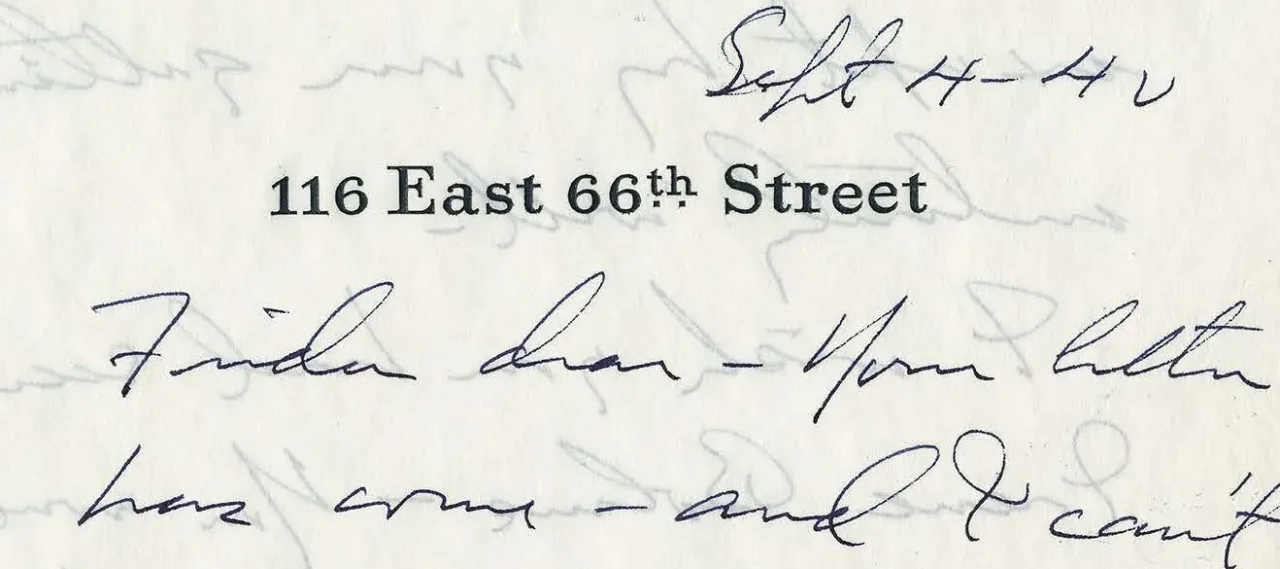 Sept 4 - 40
116 East 66th Street
Frida dear - Your letter
has come - and I can't